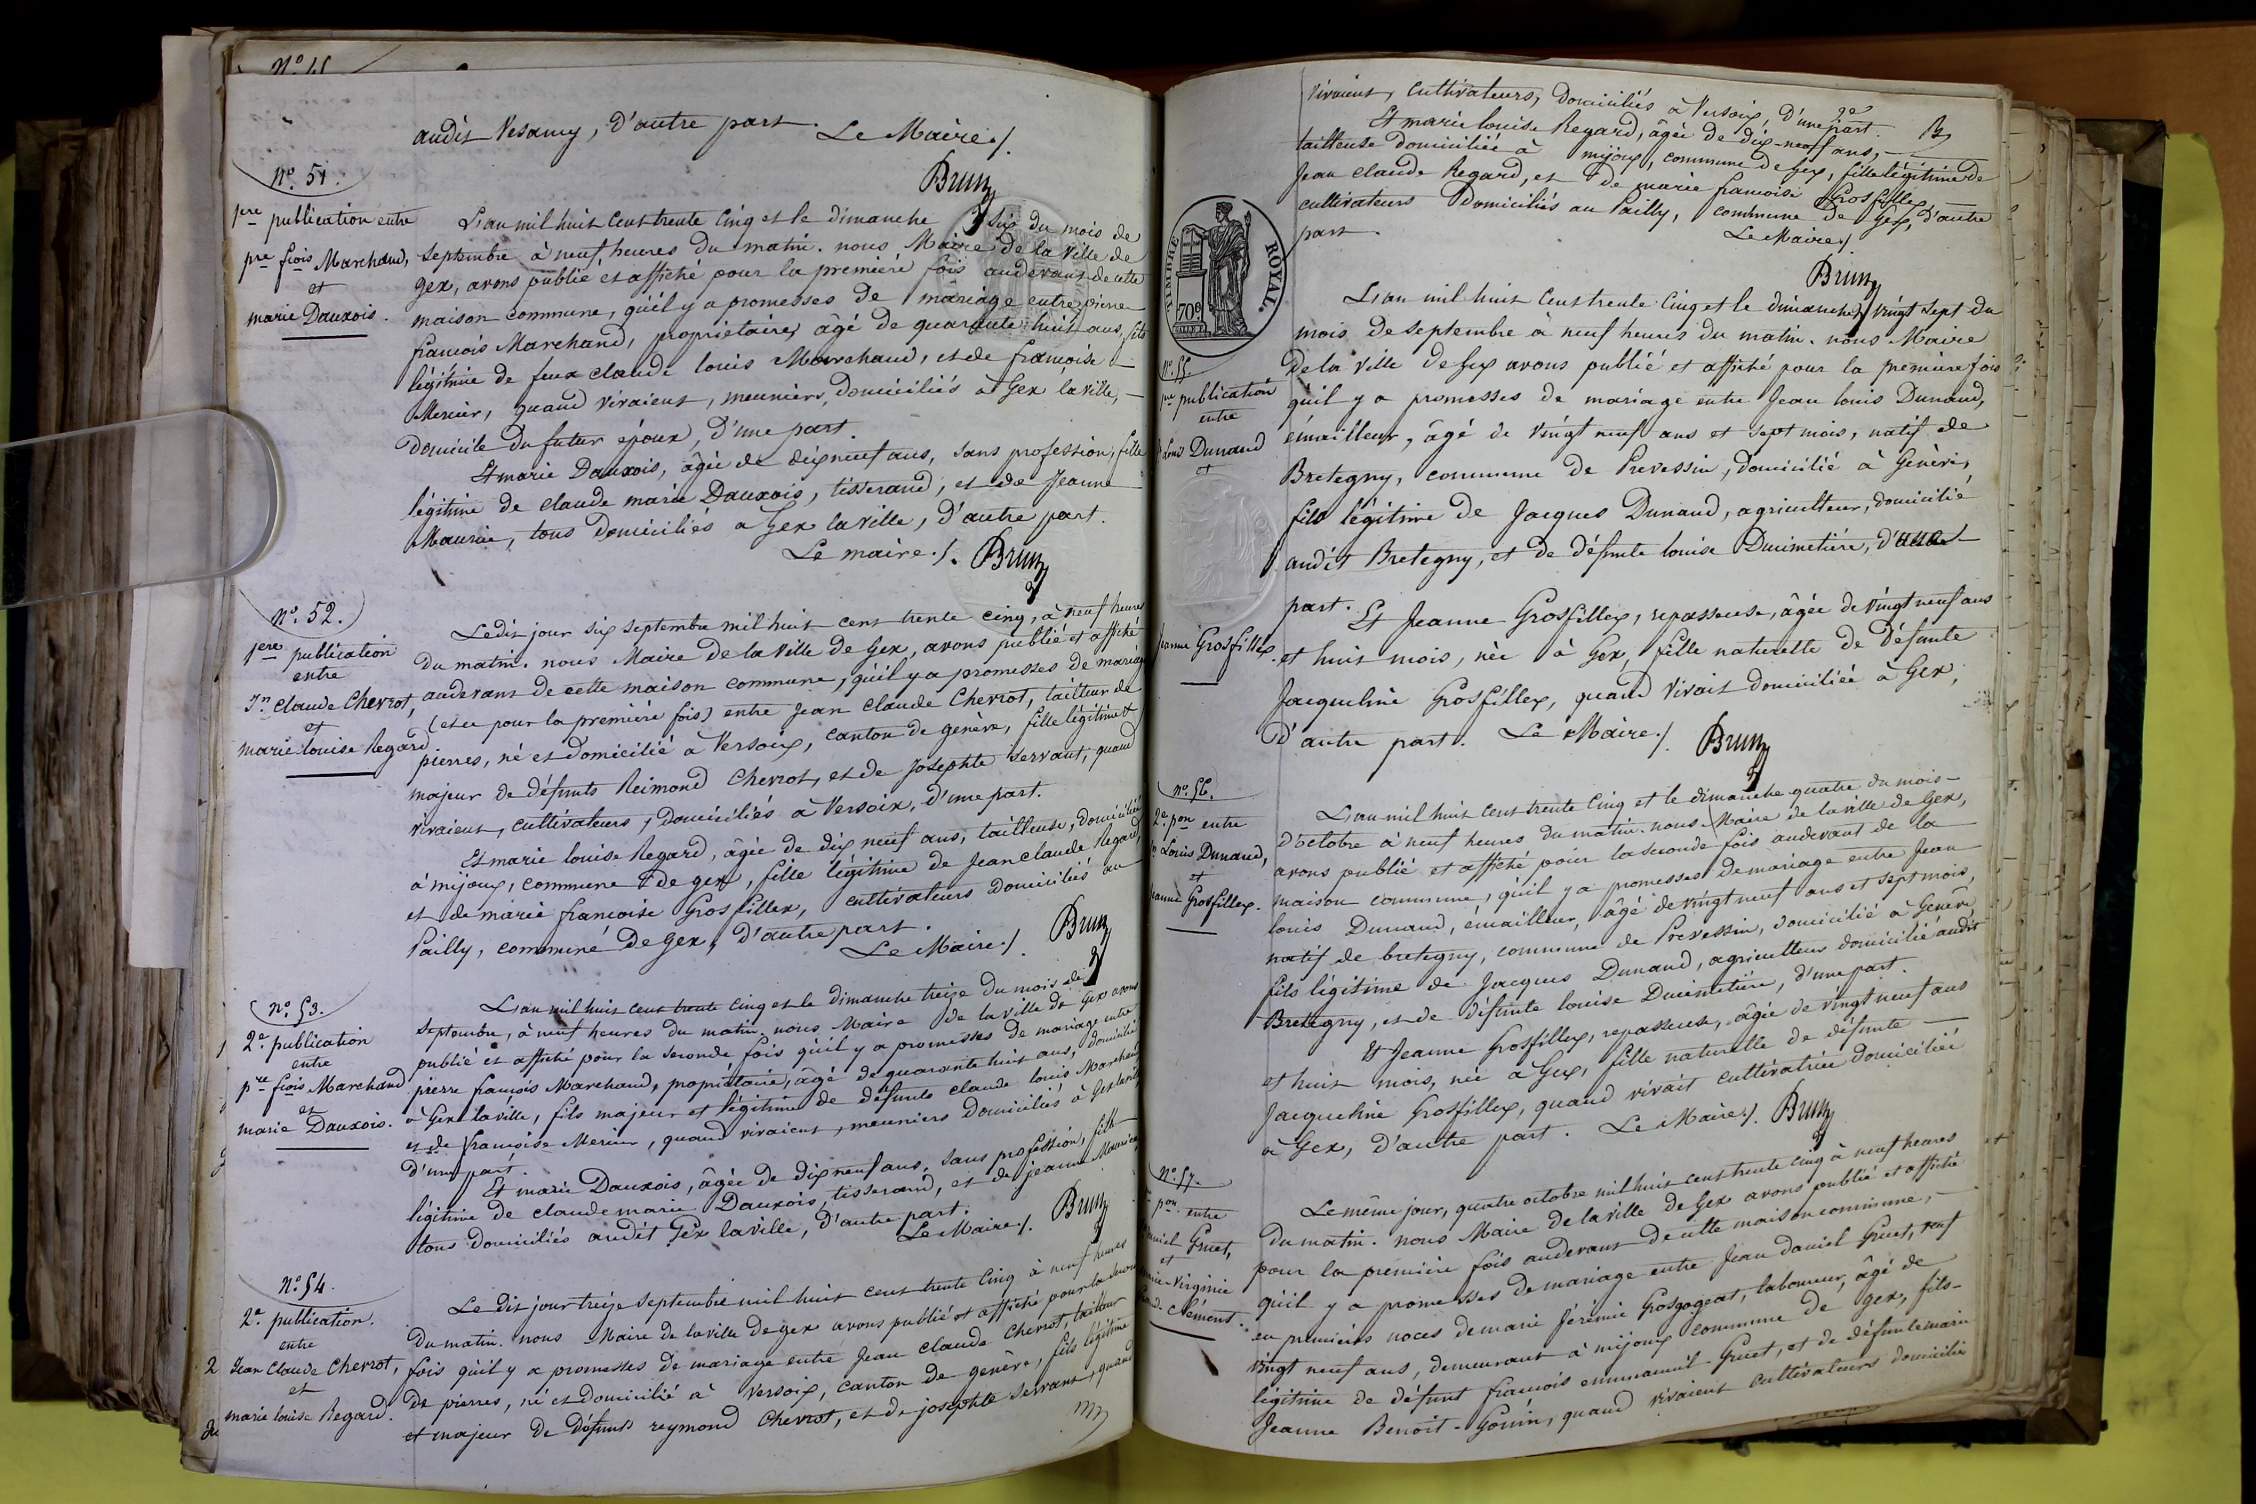 N° 45
audit Vesancy, d'autre part. Le Maire ./.
Brun
N° 51.
1re publication entre
pre fçois Marchand,
et
marie Dauxois.
L'an mil huit cent trente cinq et le dimanche six du mois de
septembre à neuf heures du matin. nous Maire de la Ville de
gex, avons publié et affiché pour la première fois audevant de cette
maison commune, qu'il y a promesses de mariage entre pierre
françois Marchand, propriétaire, âgé de quarante huit ans, fils
légitime de feux claude louis Marchand, et de françoise
Mercier, quand vivaient, meuniers, domiciliés à Gex la ville,
domicile du futur époux, d'une part.
Et marie Dauxois, âgée de dix neuf ans, sans profession, fille
légitime de claude marie Dauxois, tisserand, et de Jeanne
Maurice, tous domiciliés à Gex la ville, d'autre part.
Le maire ./. Brun
N° 52.
1ere publication
entre
Jn claude Chevrot,
et
marie louise Regard.
Ledit jour six septembre mil huit cent trente cinq, à neuf heures
du matin. nous Maire de la Ville de Gex, avons publié et affiché
audevant de cette maison commune, qu'il y a promesses de mariage
(et ce pour la première fois) entre Jean Claude Chevrot, tailleur de
pierres, né et domicilié à Versoix, canton de genève, fille légitime et
majeur de défunts Reimond Chevrot, et de Josephte Servant, quand
vivaient, cultivateurs, domiciliés à Versoix, d'une part.
Et marie louise Regard, âgée de dix neuf ans, tailleuse, domiciliée
à mijoux, commune de gex, fille légitime de Jean claude Regard,
et de marie françoise Grosfillex, cultivateurs domiciliés au
Pailly, commune de Gex, d'autre part.
Le Maire ./. Brun
N° 53.
2e publication
entre
pre fçois Marchand
et
marie Dauxois.
L'an mil huit cent trente cinq et le dimanche treize du mois de
septembre, à neuf heures du matin. nous Maire de la ville de Gex avons
publié et affiché pour la seconde fois qu'il y a promesses de mariage entre
pierre françois Marchand, propriétaire, âgé de quarante huit ans, domicilié
à Gex la ville, fils majeur et légitime de défunts claude louis Marchand
et de françoise Mercier, quand vivaient, meuniers domiciliés à Gex la ville
d'une part.
Et marie Dauxois, âgée de dix neuf ans, sans profession, fille
légitime de claude marie Dauxois, tisserand, et de jeanne Maurice,
tous domiciliés audit Gex la ville, d'autre part.
Le Maire ./. Brun
N° 54.
2e publication.
entre
Jean Claude Chevrot,
et
marie louise Regard.
Le dit jour treize septembre mil huit cent trente cinq à neuf heures
du matin. nous Maire de la ville de gex avons publié et affiché pour la seconde
fois qu'il y a promesses de mariage entre Jean claude Chevrot, tailleur
de pierres, né et domicilié à Versoix, canton de genève, fils légitime
et majeur de défunts reymond Chevrot, et de josephte Servant, quand
vivaient, cultivateurs, domiciliés à Versoix, d'une part.
Et marie louise Regard, âgée de dix-neuf ans,
tailleuse domiciliée à mijoux, commune de Gex, fille légitime de
Jean claude Regard, et de marie françoise Grosfillex,
cultivateurs domiciliés au Pailly, commune de Gex, d'autre
part.
Le Maire ./.
Brun
TIMBRE ROYAL.
70c
N° 55.
1re publication
entre
Louis Dunand
et
Jeanne Grosfillex.
L'an mil huit cent trente cinq et le dimanche vingt sept du
mois de septembre à neuf heures du matin. nous Maire
de la ville de Gex avons publié et affiché pour la première fois
qu'il y a promesses de mariage entre Jean louis Dunand,
émailleur, âgé de vingt neuf ans et sept mois, natif de
Bretegny, commune de Prevessin, domicilié à Genève,
fils légitime de Jacques Dunand, agriculteur, domicilié
audit Bretegny, et de défunte louise Ducimetière, d'une
part.
Et Jeanne Grosfillex, repasseuse, âgée de vingt neuf ans
et huit mois, née à Gex, fille naturelle de défunte
Jacqueline Grosfillex, quand vivait domiciliée à Gex,
d'autre part. Le Maire ./. Brun
N° 56.
2e pon entre
Jn Louis Dunand,
et
Jeanne Grosfillex.
L'an mil huit cent trente cinq et le dimanche quatre du mois
d'octobre à neuf heures du matin. nous Maire de la ville de Gex,
avons publié et affiché pour la seconde fois audevant de la
maison commune, qu'il y a promesses de mariage entre Jean
louis Dunand, émailleur, âgé de vingt neuf ans et sept mois,
natif de bretegny, commune de Prevessin, domicilié à Genève
fils légitime de Jacques Dunand, agriculteur domicilié audit
Bretegny, et de défunte louise Ducimetière, d'une part.
Et Jeanne Grosfillex, repasseuse, âgée de vingt neuf ans
et huit mois, née à Gex, fille naturelle de défunte
Jacqueline Grosfillex, quand vivait cultivatrice domiciliée
à Gex, d'autre part. Le Maire ./. Brun
N° 57.
pon entre
Daniel Gruet,
et
Virginie
Clément.
Le même jour, quatre octobre mil huit cent trente cinq à neuf heures
du matin. nous Maire de la ville de Gex avons publié et affiché
pour la première fois audevant de cette maison commune,
qu'il y a promesses de mariage entre Jean daniel Gruet, veuf
en premières noces de marie Jérémie Grosgogeat, laboureur, âgé de
vingt neuf ans, demeurant à mijoux commune de gex, fils
légitime de défunt françois emmanuel Gruet, et de défunte marie
Jeanne Benoit-Gonin, quand vivaient cultivateurs domiciliés